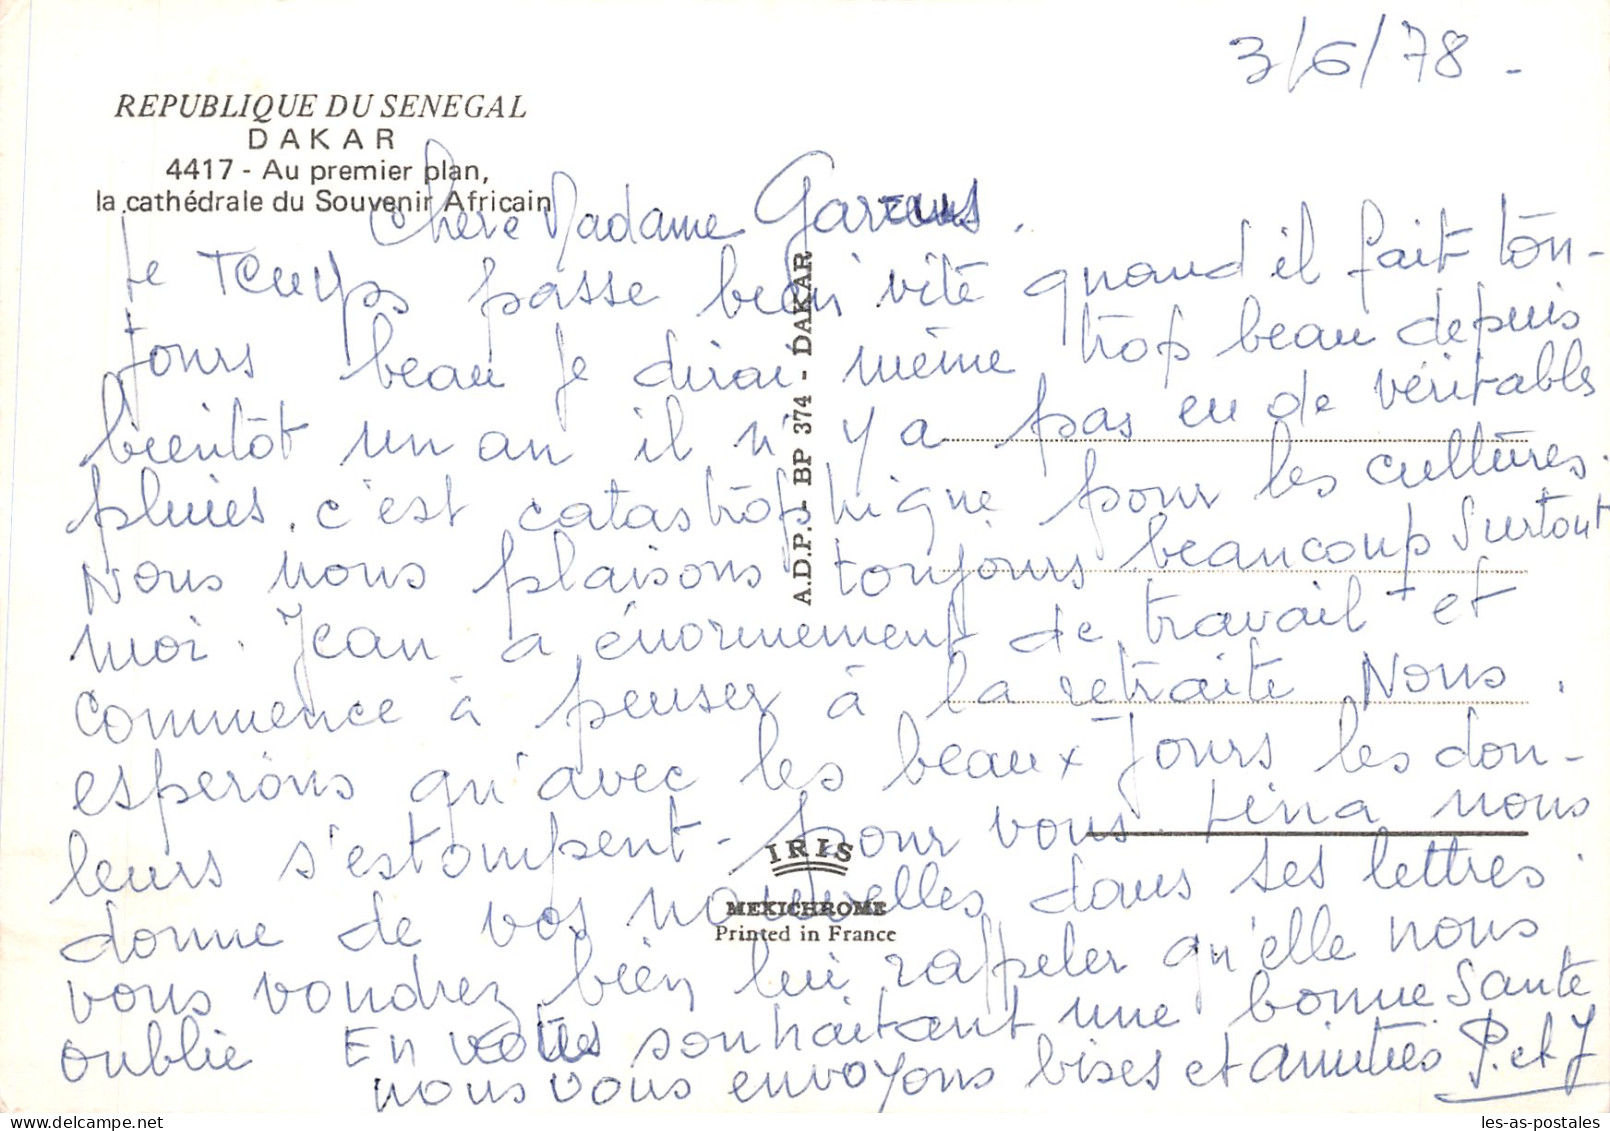 3/6/78 -
REPUBLIQUE DU SENEGAL
DAKAR
4417 - Au premier plan,
la cathédrale du Souvenir Africain
Chère Madame
Le Temps passe bien vite quand il fait tou-
jours beau je dirai même trop beau depuis
bientôt un an il n'y a pas eu de véritables
pluies, c'est catastrophique pour les cultures.
Nous nous plaisons toujours beaucoup surtout
moi. Jean a énormement de travail et
commence à penser à la retraite Nous
esperons qu'avec les beaux jours les dou-
leurs s'estompent - pour vous. Lina nous
donne de vos nouvelles dans ses lettres.
vous voudrez bien lui rappeler qu'elle nous
oublie En vous souhaitant une bonne Sante
nous vous envoyons bises et amitiés P. et J
A.D.P. - BP 374 - DAKAR
IRIS
MEXICHROME
Printed in France
les-as-postales